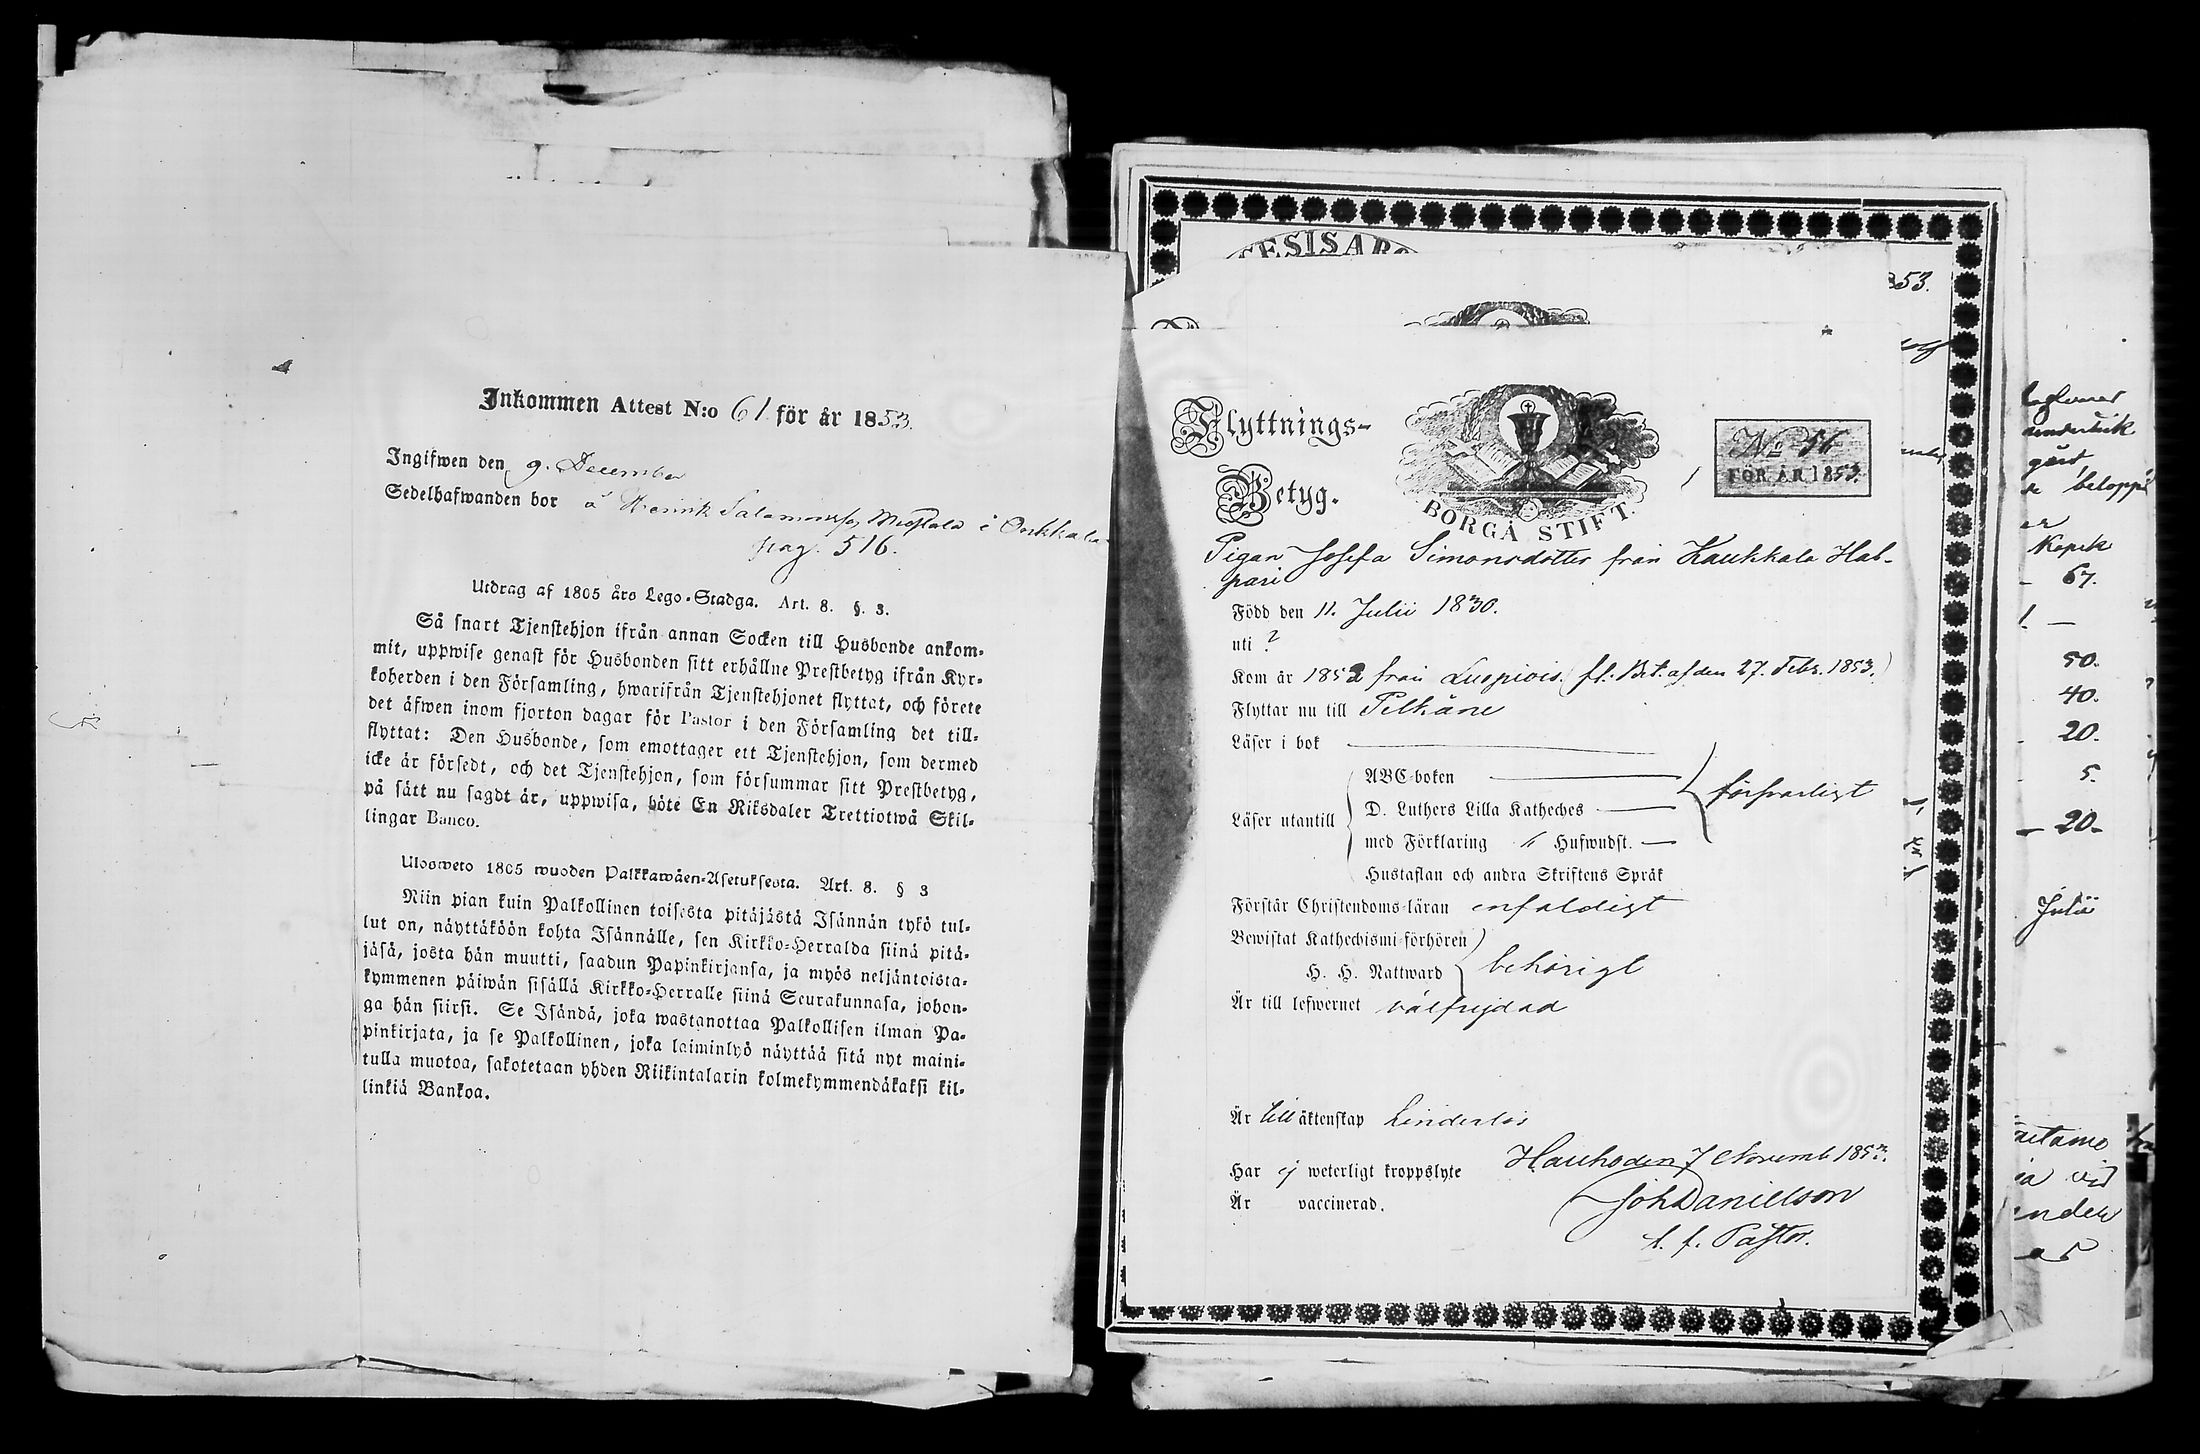 Inkommen Attest N:o 61 för år 1853.
Ingifwen den 9. December
Sedelhafwanden bor å Henrik Salomonsf. Miestala i Onkkala
pag. 516.
Utdrag af 1805 års Lego-Stadga. Art. 8. §. 3.
Så snart Tjenstehjon ifrån annan Socken till Husbonde ankom-
mit, uppwise genast för Husbonden sitt erhållne Prestbetyg ifrån Kyr-
koherden i den Församling, hwarifrån Tjenstehjonet flyttat, och förete
det äfwen inom fjorton dagar för Pastor i den Församling det till-
flyttat: Den Husbonde, som emottager ett Tjenstehjon, som dermed
icke är försedt, och det Tjenstehjon, som försummar sitt Prestbetyg,
på sätt nu sagdt är, uppwisa, böte En Riksdaler Trettiotwå Skil-
lingar Banco.
Ulosweto 1805 wuoden Palkkawäen-Asetuksesta. Art. 8. § 3
Niin pian kuin Palkollinen toisesta pitäjästä Isännän tykö tul-
lut on, näyttäköön kohta Isännälle, sen Kirkko-Herralda siinä pitä-
jäsä, josta hän muutti, saadun Papinkirjansa, ja myös neljäntoista-
kymmenen päiwän sisällä Kirkko-Herralle siinä Seurakunnasa, johon-
ga hän siirsi. Se Isändä, joka wastanottaa Palkollisen ilman Pa-
pinkirjata, ja se Palkollinen, joka laiminlyö näyttää sitä nyt maini-
tulla muotoa, sakotetaan yhden Riikintalarin kolmekymmendäkaksi kil-
linkiä Bankoa.
53.
Flyttnings-
Betyg.
BORGÅ STIFT.
No 56
FÖR ÅR 1853.
Pigan Josefa Simonsdotter från Kaukkala Hab-
pari
Född den 11. Julii 1830.
uti ?
Kom år 1852 från Luopiois (fl. Bet. af den 27. Febr. 1853.)
Flyttar nu till Pelkäne
Läser i bok
Läser utantill
ABC-boken
D. Luthers Lilla Katheches
med Förklaring Hufwudst.
försvarligt
Hustaflan och andra Skriftens Språk
Förstår Christendoms-läran enfaldigt
Bewistat Kathechismi-förhören
H. H. Nattward behörigt
Är till lefwernet välfrejdad
Är till äktenskap hinderlös
Har ej weterligt kroppslyte
Är vaccinerad.
Hauho den 7 Novemb 1853.
Joh Danielson
t. f. Pastor.
gård
belopp
Kopek
67.
1. —
50.
40.
20.
5.
20.
Julii
vid